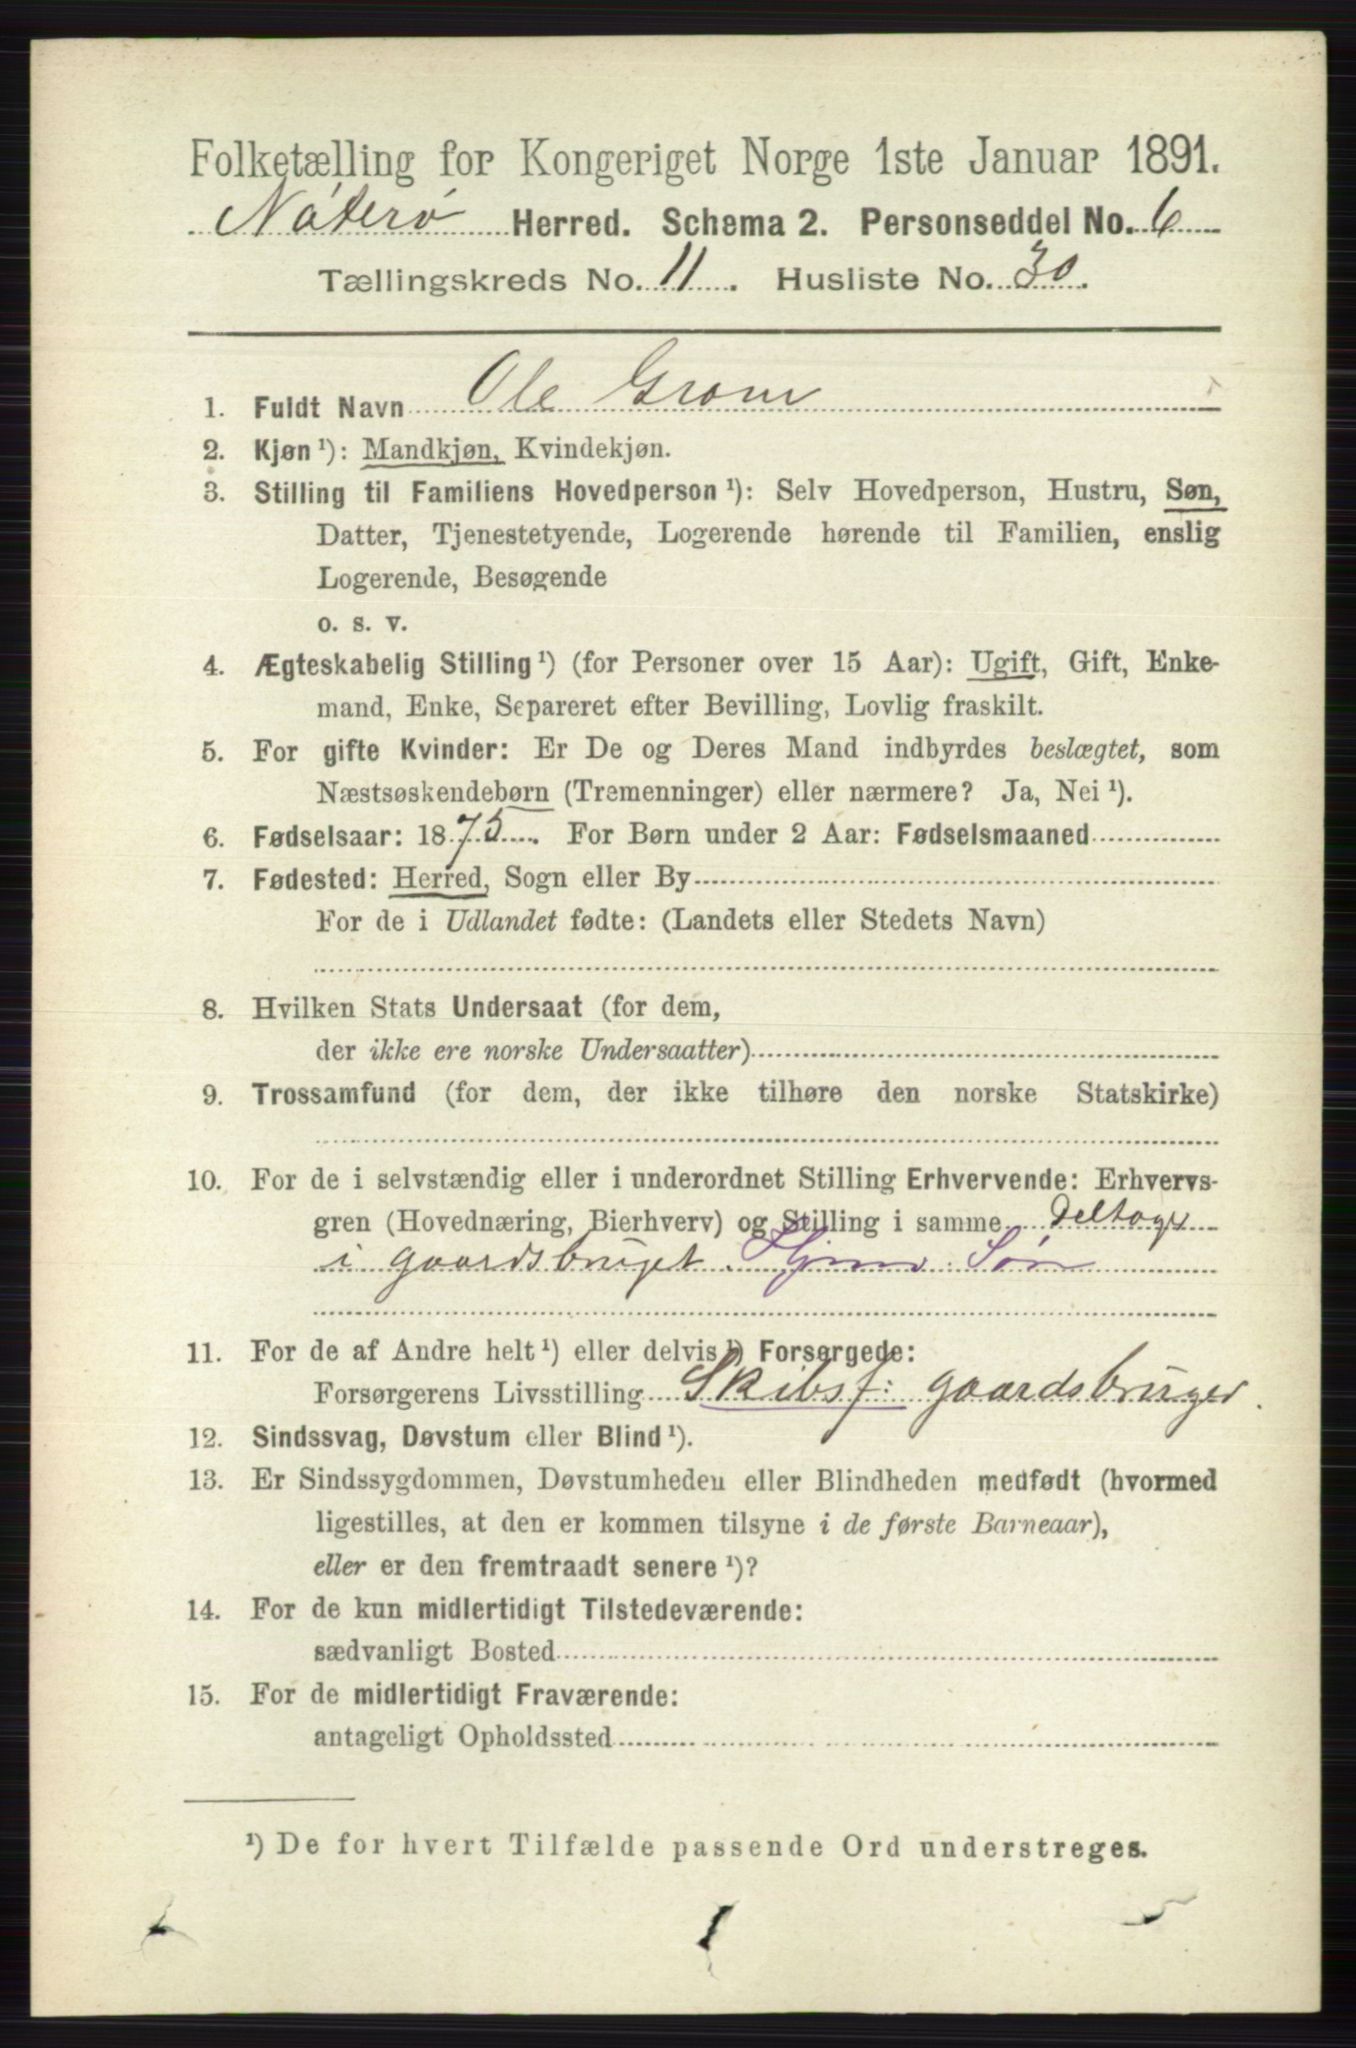 Folketælling for Kongeriget Norge 1ste Januar 1891.
Nøterø Herred. Schema 2. Personseddel No. 6
Tællingskreds No. 11. Husliste No. 30.
1. Fuldt Navn Ole Grom
2. Kjøn ¹): Mandkjøn, Kvindekjøn.
3. Stilling til Familiens Hovedperson ¹): Selv Hovedperson, Hustru, Søn,
Datter, Tjenestetyende, Logerende hørende til Familien, enslig
Logerende, Besøgende
o. s. v.
4. Ægteskabelig Stilling ¹) (for Personer over 15 Aar): Ugift, Gift, Enke-
mand, Enke, Separeret efter Bevilling, Lovlig fraskilt.
5. For gifte Kvinder: Er De og Deres Mand indbyrdes beslægtet, som
Næstsøskendebørn (Tremenninger) eller nærmere? Ja, Nei ¹).
6. Fødselsaar: 1875. For Børn under 2 Aar: Fødselsmaaned
7. Fødested: Herred, Sogn eller By
For de i Udlandet fødte: (Landets eller Stedets Navn)
8. Hvilken Stats Undersaat (for dem,
der ikke ere norske Undersaatter)
9. Trossamfund (for dem, der ikke tilhøre den norske Statskirke)
10. For de i selvstændig eller i underordnet Stilling Erhvervende: Erhvervs-
gren (Hovednæring, Bierhverv) og Stilling i samme Deltager
i gaardsbruget. Hjmv. Søn
11. For de af Andre helt ¹) eller delvis ¹) Forsørgede:
Forsørgerens Livsstilling Skibsf: gaardsbruger.
12. Sindssvag, Døvstum eller Blind ¹).
13. Er Sindssygdommen, Døvstumheden eller Blindheden medfødt (hvormed
ligestilles, at den er kommen tilsyne i de første Barneaar),
eller er den fremtraadt senere ¹)?
14. For de kun midlertidigt Tilstedeværende:
sædvanligt Bosted
15. For de midlertidigt Fraværende:
antageligt Opholdssted
¹) De for hvert Tilfælde passende Ord understreges.